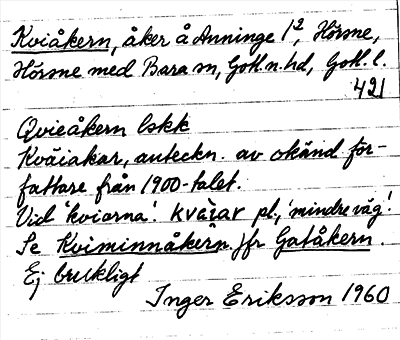 Kviåkern, åker å Anninge 1², Hörsne,
Hörsne med Bara sn, Gotl. n. hd, Gotl. l.
421
Qvieåkern lskk
Kväiakar, anteckn. av okänd för-
fattare från 1900-talet.
Vid 'kviarna'. kväiar pl., 'mindre väg'.
Se Kviminnåkern. jfr Gatåkern.
Ej brukligt
Inger Eriksson 1960